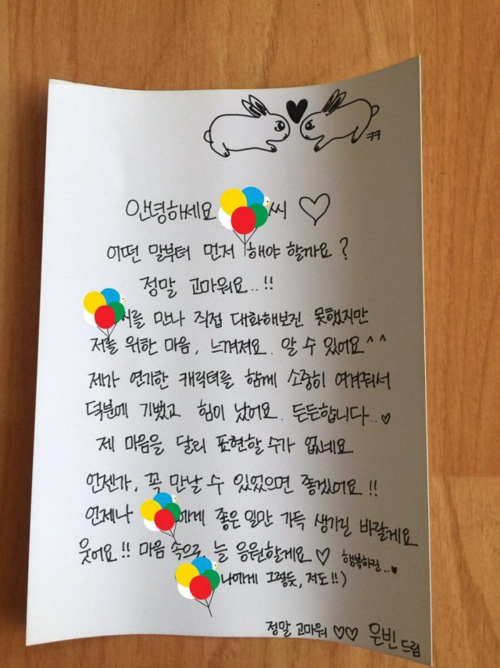 ㅋㅋ
안녕하세요 씨 ♡
어떤 말부터 먼저 해야 할까요?
정말 고마워요..!!
씨를 만나 직접 대화해보진 못했지만
저를 위한 마음, 느껴져요. 알 수 있어요^^
제가 연기한 캐릭터를 함께 소중히 여겨줘서
덕분에 기뻤고 힘이 났어요. 든든합니다..♡
제 마음을 달리 표현할 수가 없네요
언젠가, 꼭 만날 수 있었으면 좋겠어요!!
언제나 에게 좋은 일만 가득 생기길 바랄게요
웃어요!! 마음 속으로, 늘 응원할게요♡ 행복하길..♥
나에게 그렇듯, 저도!!)
정말 고마워 ♡♡ 은빈 드림